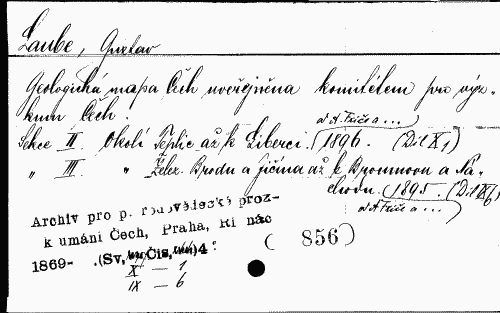 Laube, Gustav
Geologická mapa Čech uveřejněna komitétem pro výz-
kum Čech.
od A. Friče a...
Sekce II. Okolí Teplic až k Liberci. 1896. (Díl X,1)
" III. " Želez. Brodu a Jičína až k Broumovu a Ná-
chodu. 1895. (Díl IX,6)
od A. Friče a...
Archiv pro p. rodovědecký proz-
k umání Čech, Praha, Ri náč
1869- .(Sv, Čís, )4°
( 856 )
X — 1
IX — 6